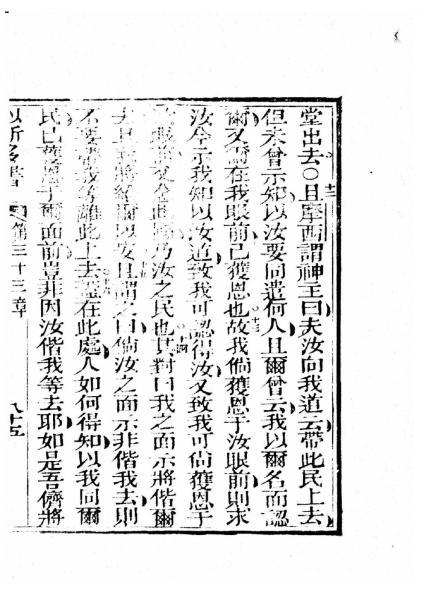 堂出去○十二且摩西謂神主曰夫汝向我道云帶此民上去
但未曾示知以汝要同遣何人且爾曾云我以爾名而認
爾又爾在我眼前已獲恩也十三故我倘獲恩于汝眼前則求
汝今示我知以汝道致我可認得汝又致我可倘獲恩于
眼前又念此國乃汝之民也十四其對曰我之面示將偕爾
去且我將給爾以安且謂之曰倘汝之面示非偕我去則
不要帶我等離此上去蓋在此處人如何得知以我同爾
民已獲恩于爾面前豈非因汝偕我等去耶如是吾儕將
第三十三章 八十五